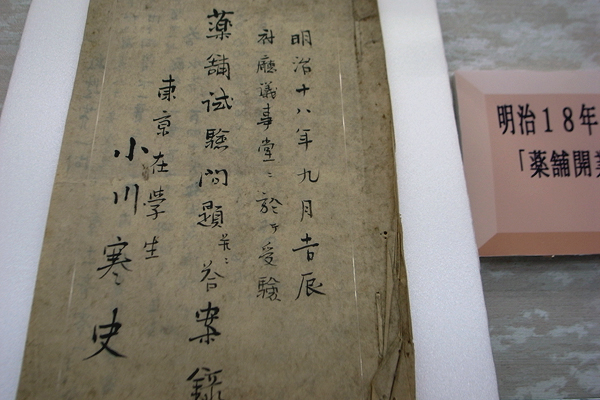 明治十八年九月吉辰
府廳議事堂ニ於テ受驗
薬舗試驗問題並ニ答案録
東京在學生
小川寒史
明治１８年
「薬舗開業